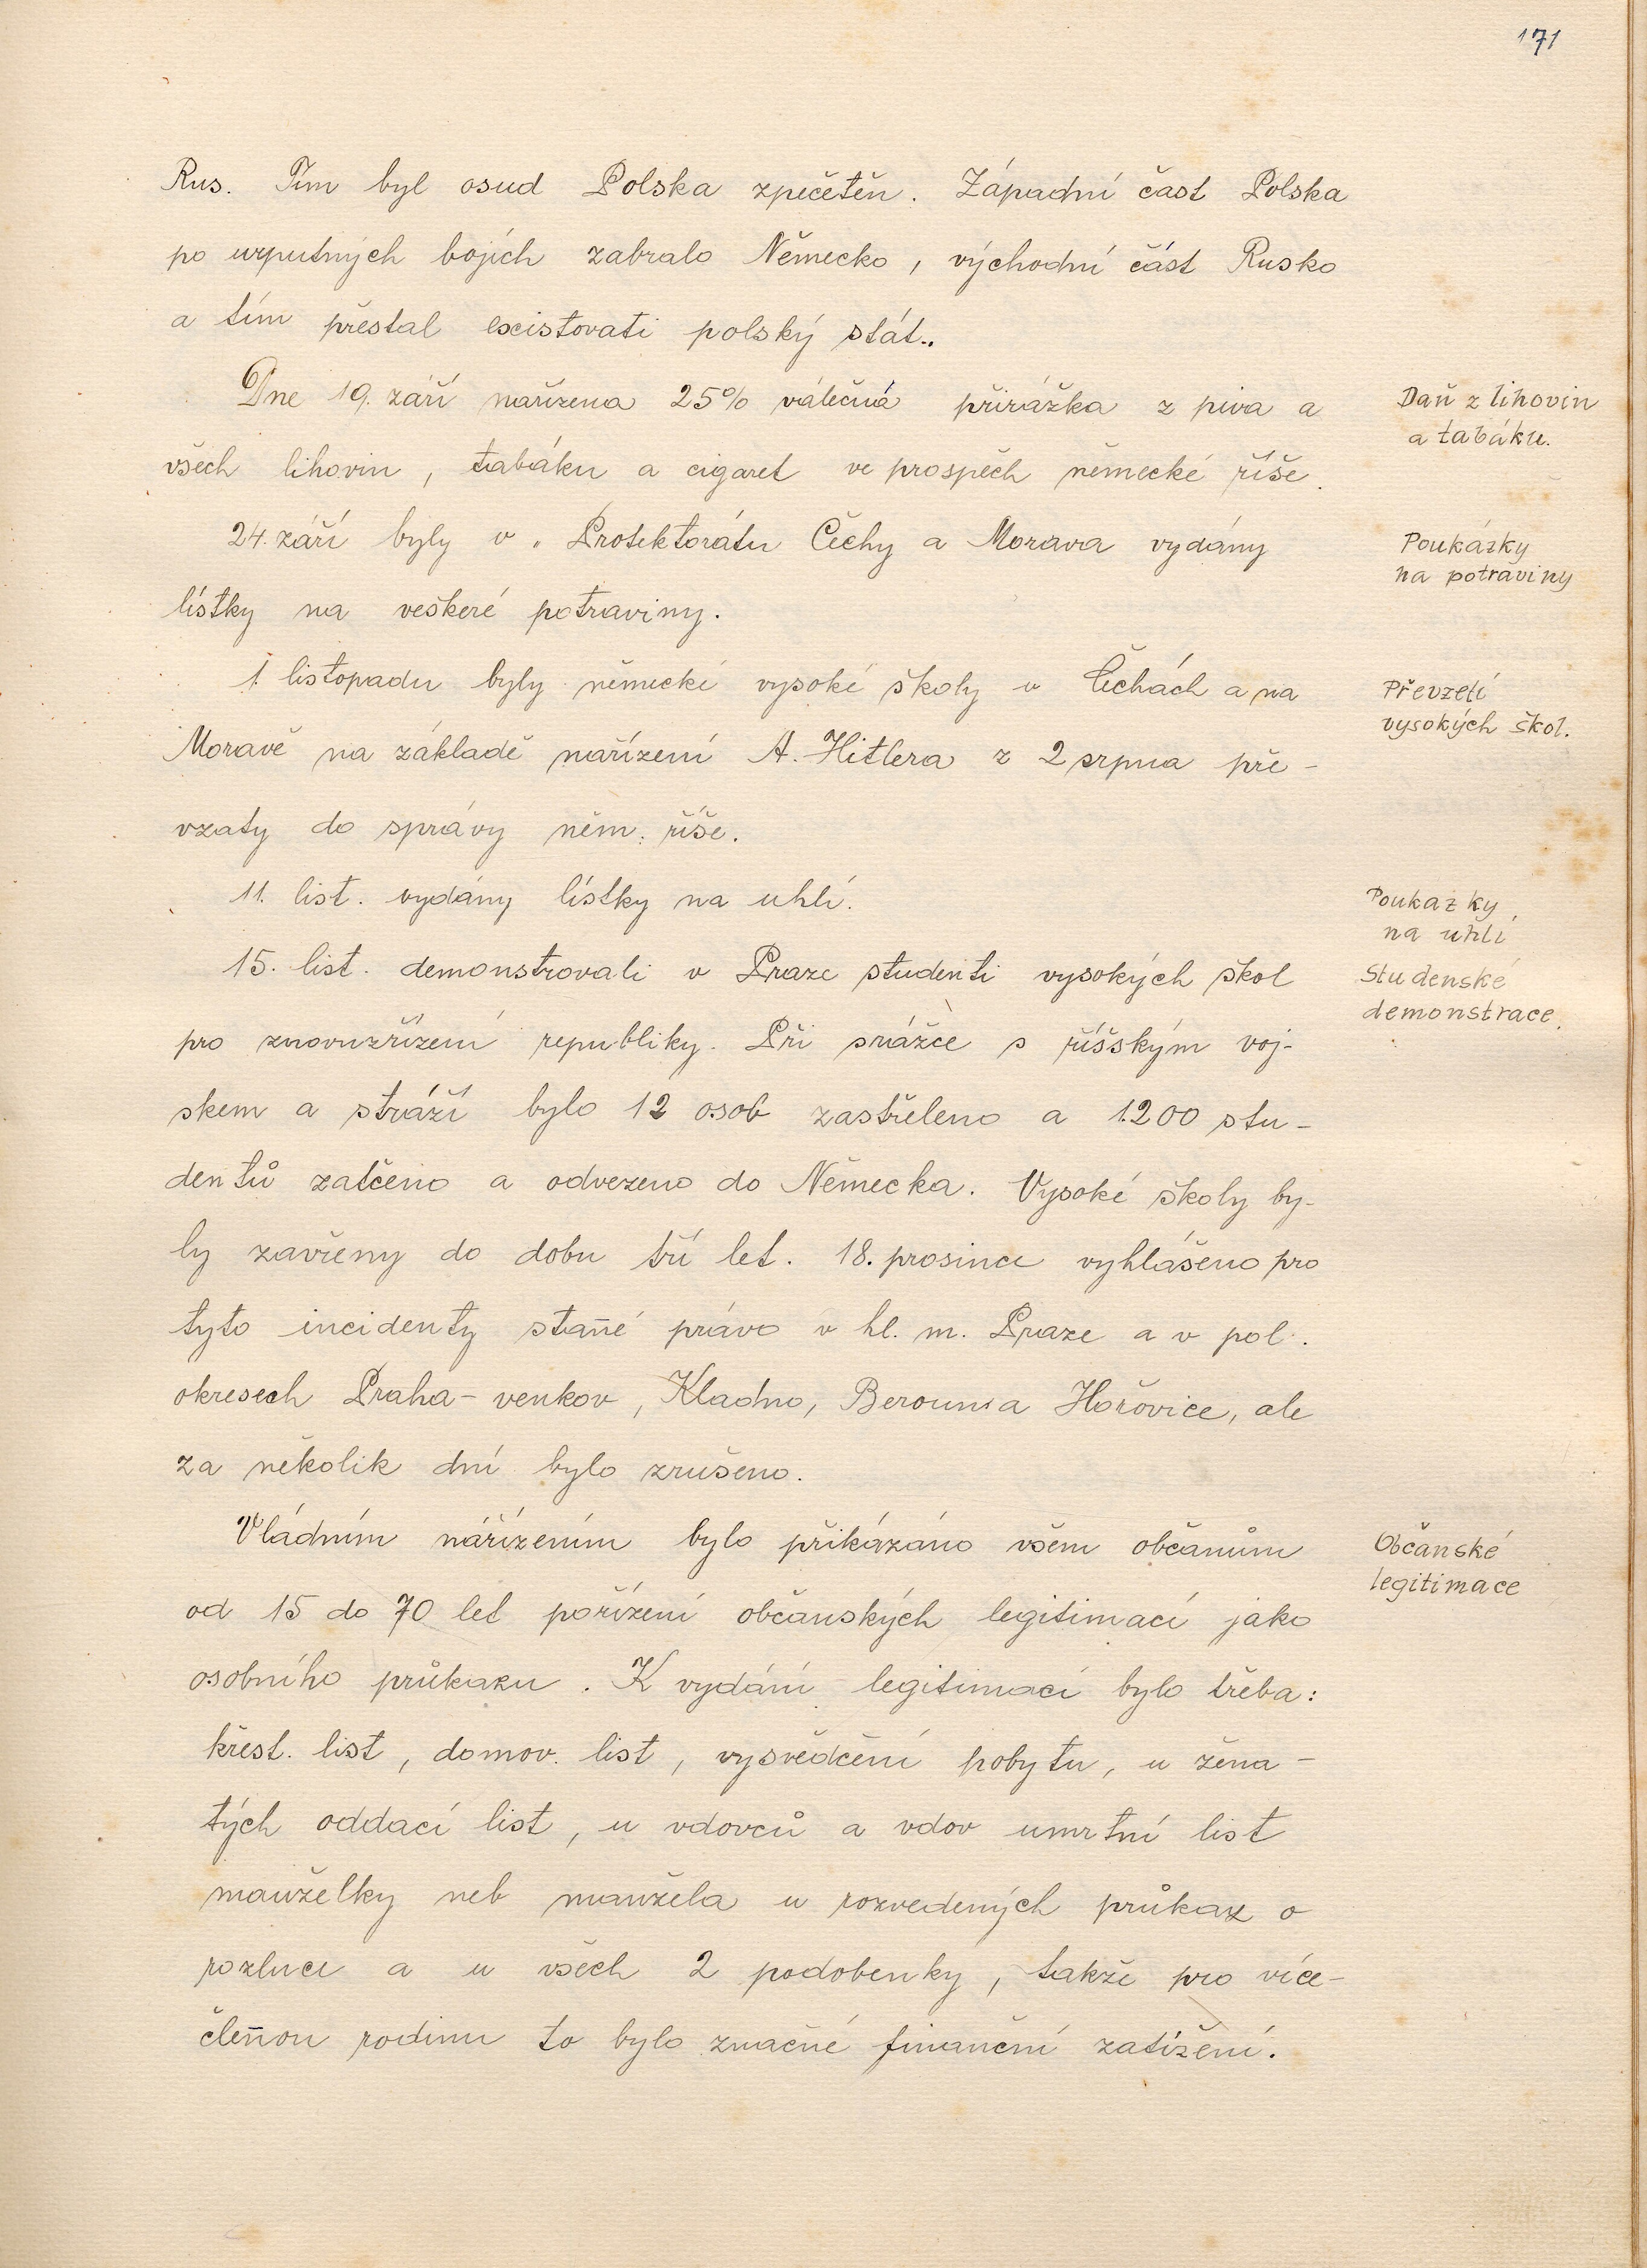 171
Rus. Tím byl osud Polska zpečetěn. Západní část Polska
po urputných bojích zabralo Německo, východní část Rusko
a tím přestal existovati polský stát..
Dne 19. září nařízena 25% válečná přirážka z piva a
všech lihovin, tabáku a cigaret ve prospěch německé říše.
Daň z lihovin
a tabáku.
24. září byly v Protektorátu Čechy a Morava vydány
lístky na veškeré potraviny.
Poukázky
na potraviny
1. listopadu byly německé vysoké školy v Čechách a na
Moravě na základě nařízení A. Hitlera z 2 srpna pře-
vzaty do správy něm. říše.
Převzetí
vysokých škol.
11. list. vydány lístky na uhlí.
Poukazky
na uhlí
15. list. demonstrovali v Praze studenti vysokých škol
pro znovuzřízení republiky. Při srážce s říšským voj-
skem a stráží bylo 12 osob zastřeleno a 1200 stu-
dentů zatčeno a odvezeno do Německa. Vysoké školy by-
ly zavřeny do dobu tří let. 18. prosince vyhlášeno pro
tyto incidenty stan̄é právo v hl. m. Praze a v pol.
okresech Praha-venkov, Kladno, Beroun a Hořovice, ale
za několik dní bylo zrušeno.
Studenské
demonstrace.
Vládním nářízením bylo přikázáno všem občanům
od 15 do 70 let pořízení občanských legitimací jako
osobního průkazu. K vydání legitimací bylo třeba:
křest. list, domov. list, vysvědčení pobytu, u žena-
tých oddací list, u vdovců a vdov umrtní list
manželky neb manžela u rozvedených průkaz o
rozluce a u všech 2 podobenky, takže pro více-
člen̄ou rodinu to bylo značné finanční zatížení.
Občanské
legitimace